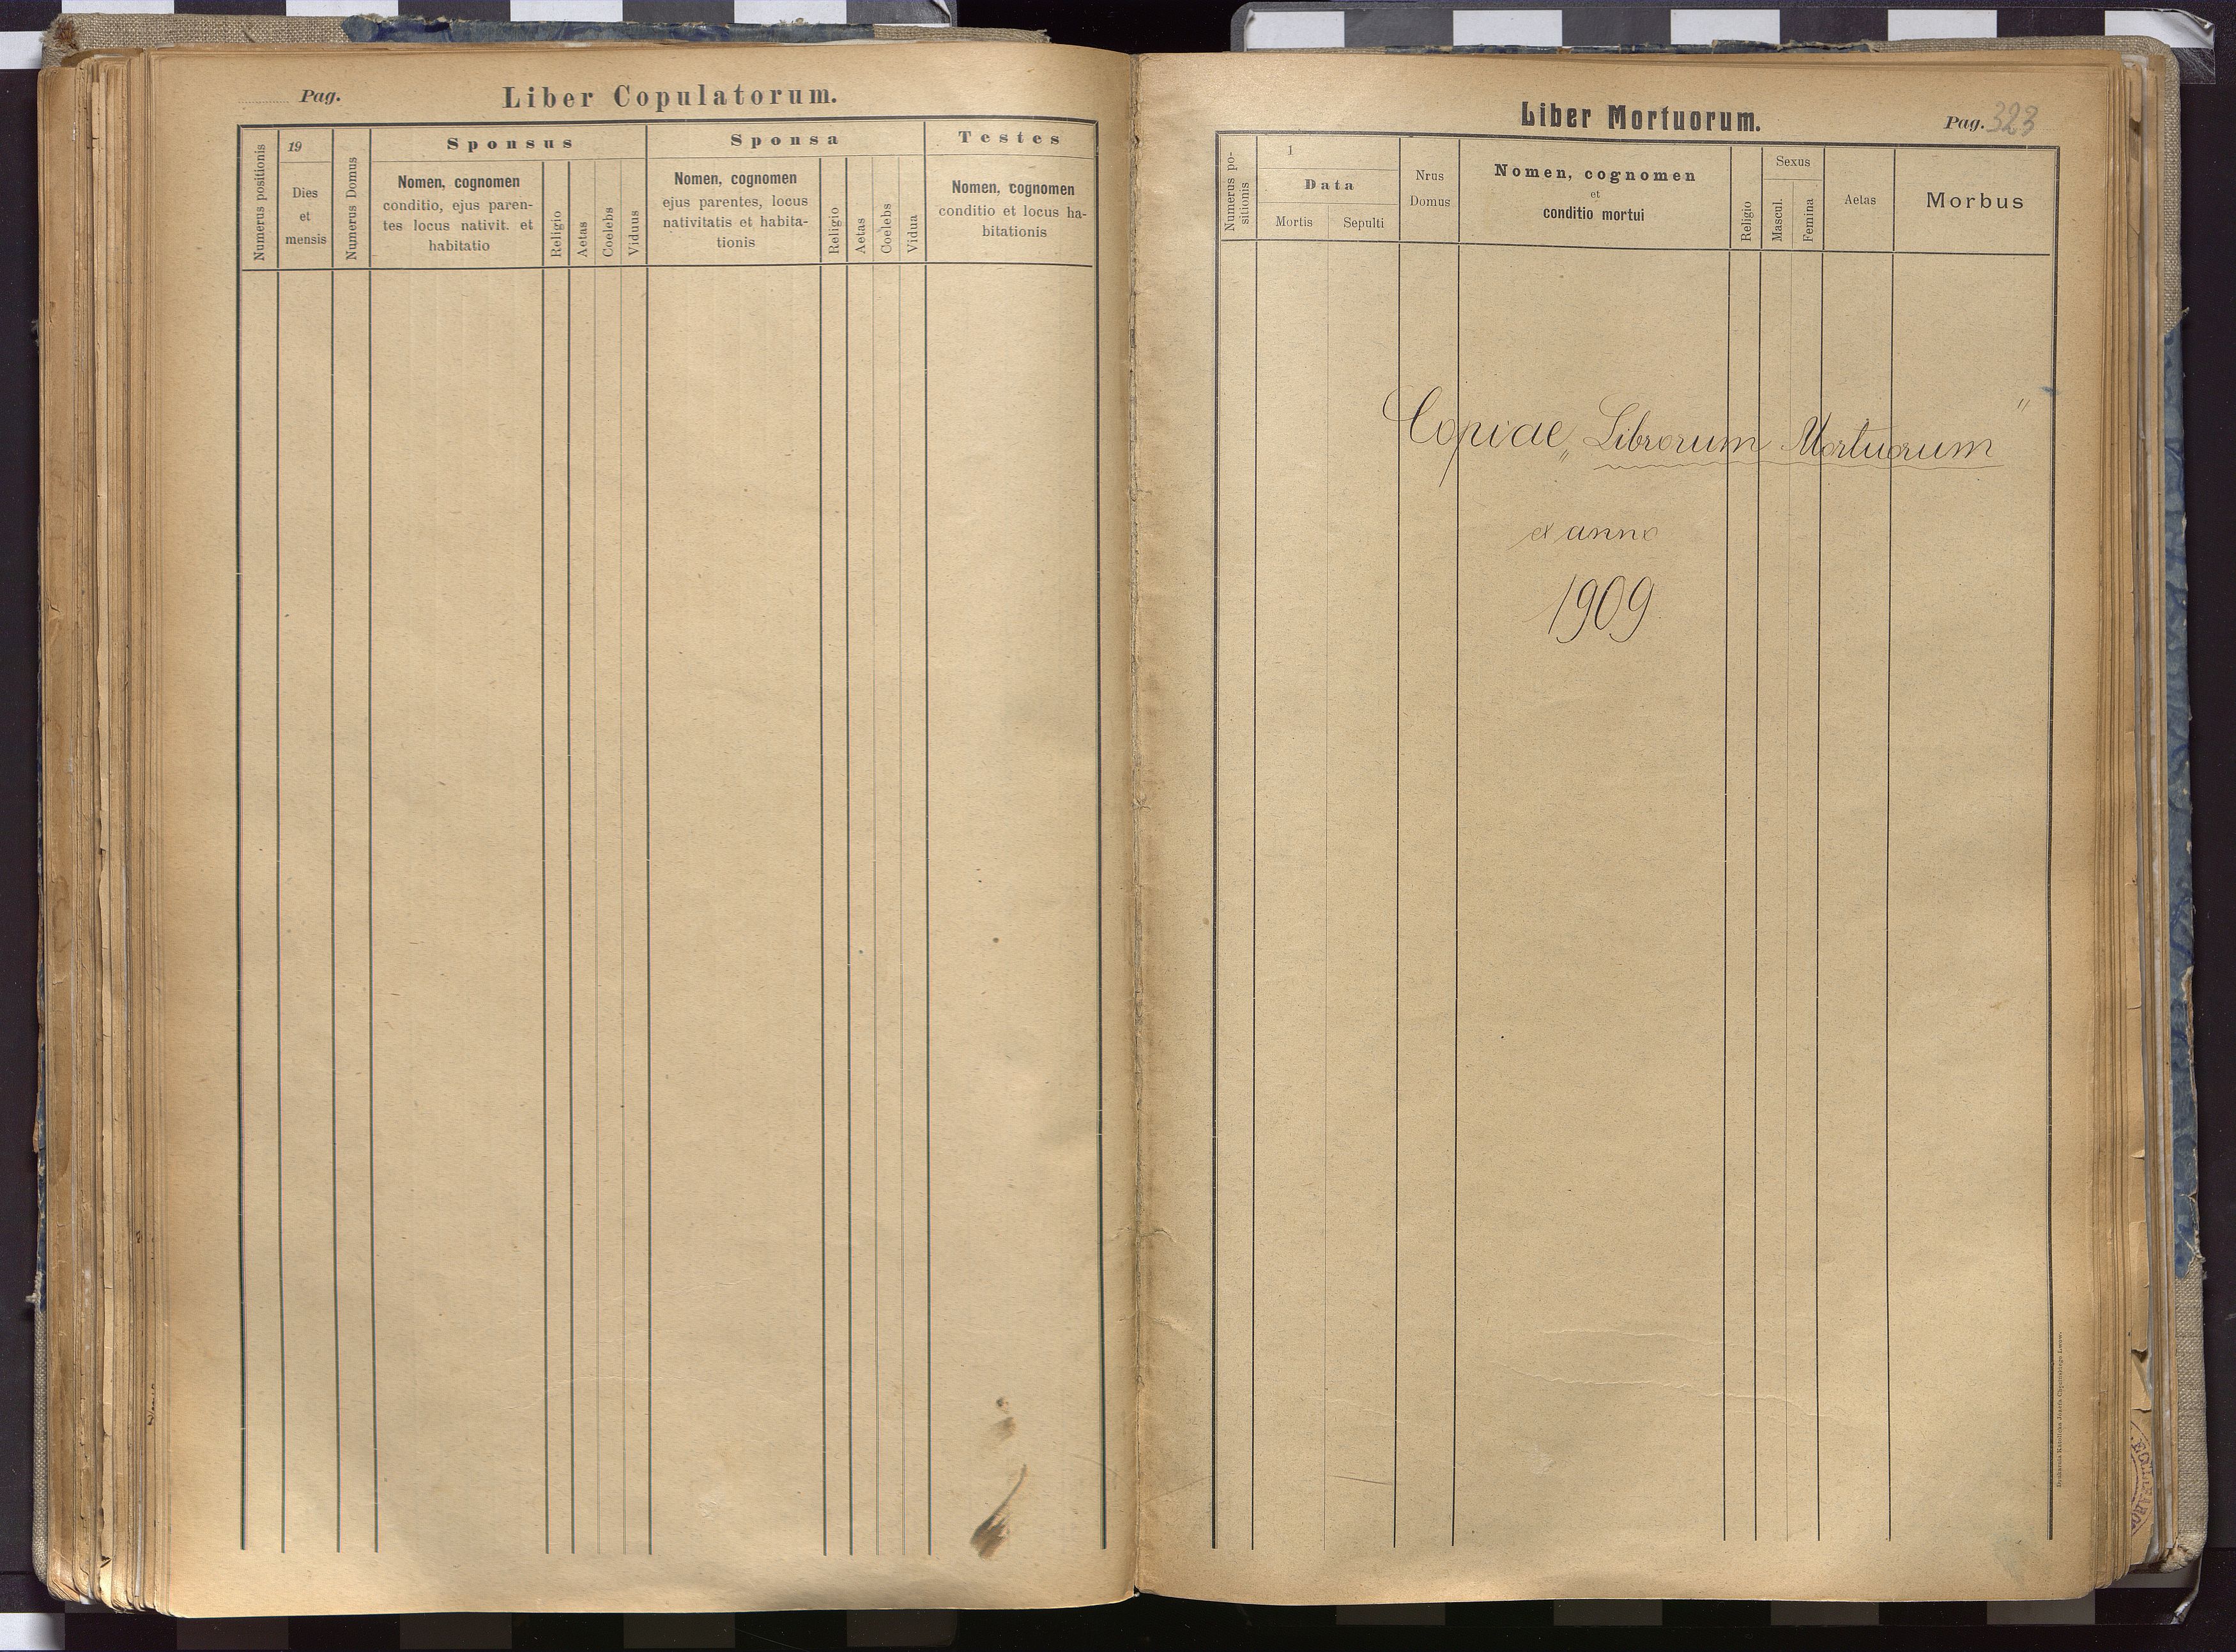 Pag.
Liber Copulatorum.
Numerus positionis
19
Dies
et
mensis
Numerus Domus
Sponsus
Nomen, cognomen
conditio, ejus paren-
tes locus nativit. et
habitatio
Religio
Aetas
Coelebs
Viduus
Sponsa
Nomen, cognomen
ejus parentes, locus
nativitatis et habita-
tionis
Religio
Aetas
Coelebs
Vidua
Testes
Nomen, cognomen
conditio et locus ha-
bitationis
Liber Mortuorum.
Pag. 323
Numerus po-
sitionis
1
Data
Mortis
Sepulti
Nrus
Domus
Nomen, cognomen
et
conditio mortui
Religio
Sexus
Mascul.
Femina
Aetas
Morbus
Copiae „Librorum Mortuorum"
ex anno
1909